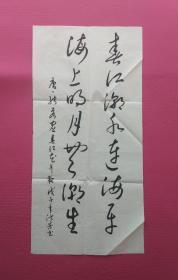 春江潮水连海平
海上明月共潮生
唐张若虚春江花月夜戊子年